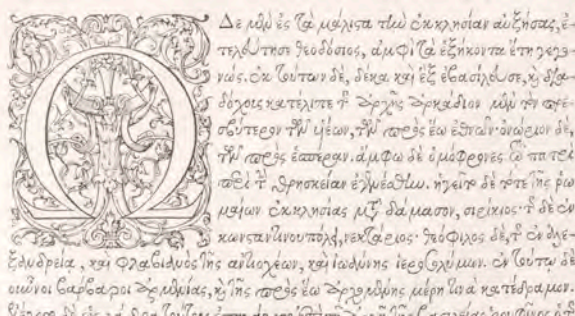 Ὧδε μὲν ἐς τὰ μάλιστα τὴν ἐκκλησίαν αὐξήσας, ἐ-
τελεύτησε θεοδόσιος, ἀμφὶ τὰ ἑξήκοντα ἔτη γεγο-
νώς. ἐκ τούτων δὲ, δέκα καὶ ἓξ ἐβασίλευσε, κỳ δια-
δόχοις κατέλιπε τ ἀρχῆς ἀρκάδιον μὲν τὸν πρε-
σβύτερον τῶν υἱέων, τῶν πρὸς ἕω ἐθνῶν· ὁνώριον δὲ,
τῶν πρὸς ἑσπέραν. ἄμφω δὲ ὁμόφρονες τῷ πατρὶ
περὶ τ θρησκείαν ἐγενέσθην. ἡγεῖτο δὲ τότε τῆς ῥω
μαίων ἐκκλησίας μτ δάμασον, σιρίκιος· τ δὲ ἐν
κωνσταντινουπόλει, νεκτάριος· θεόφιλος δὲ, τ ἐν ἀλε-
ξανδρείᾳ, καὶ φλαβιανὸς τῆς ἀντιοχέων, καὶ ἰωάννης ἱεροσολύμων. ἐν τούτῳ δὲ
οὖννοι βάρβαροι ἀρμενίας, κỳ τῆς πρὸς ἕω ἀρχομένης μέρη τινὰ κατέδραμον.